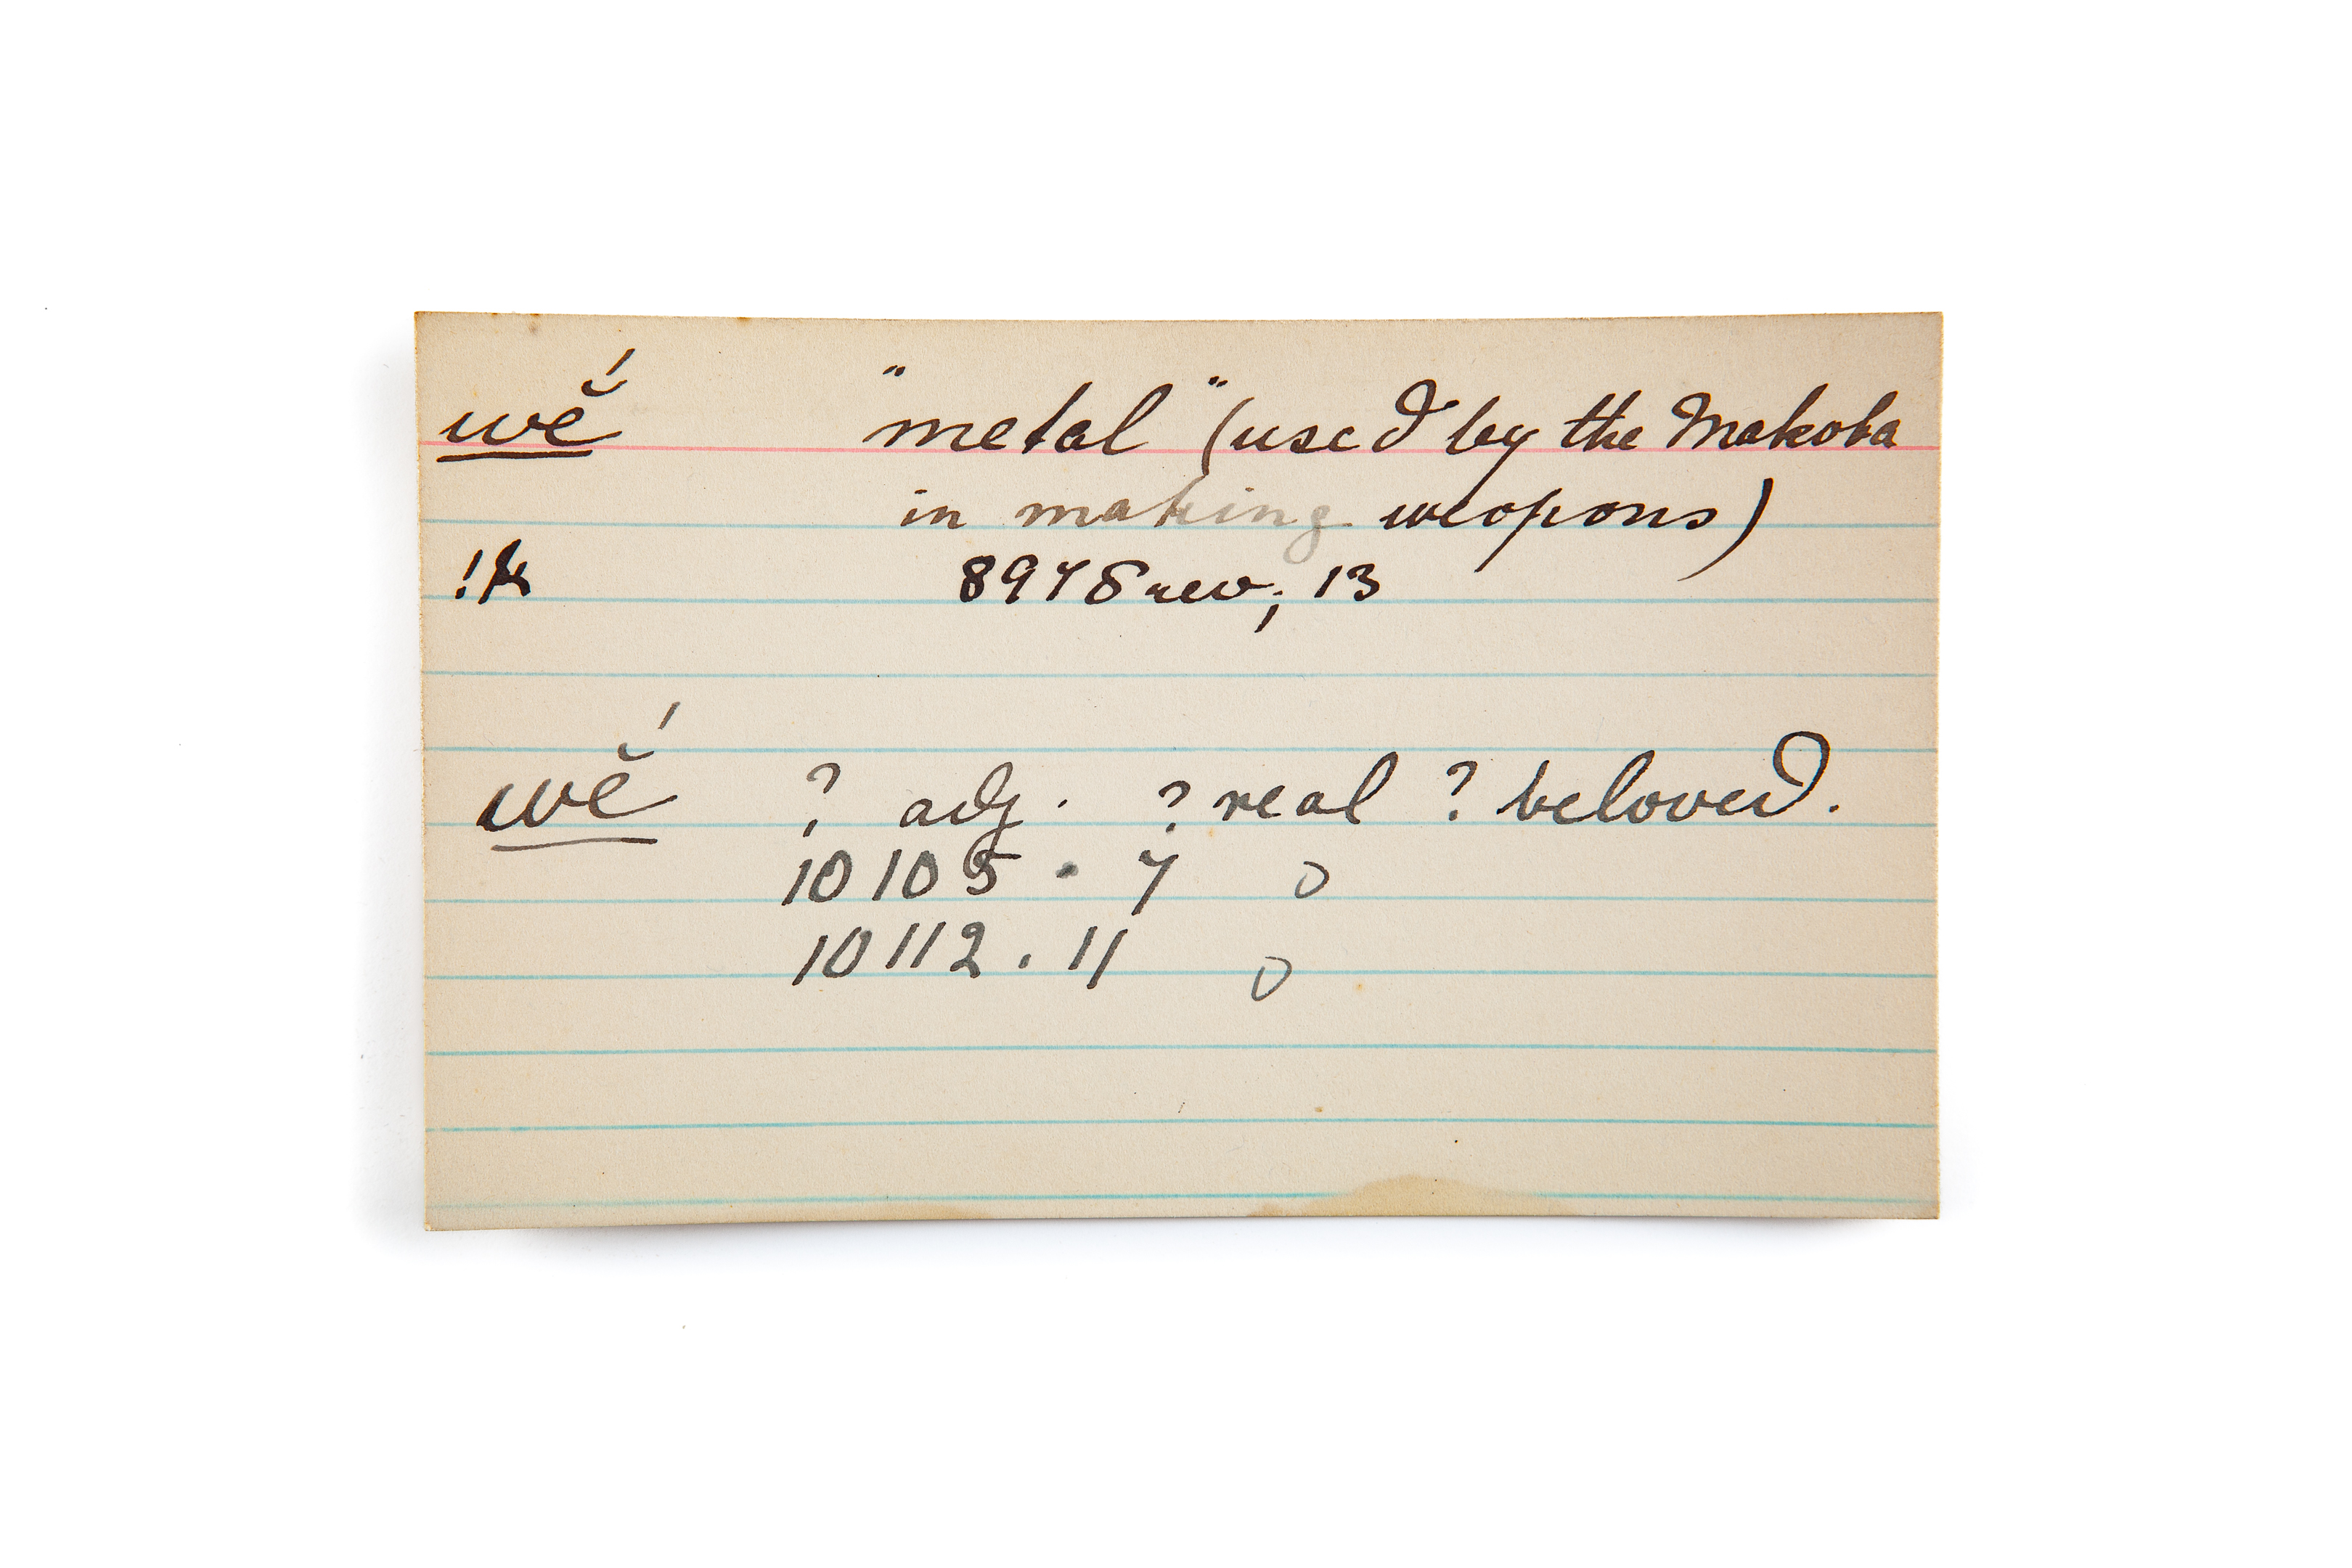 wĕ́ "metal" (used by the Makoba
in making weapons)
!k 8978 rev; 13
wĕ́ ? adj. ? real ? beloved.
10105 . 7
10112 . 11